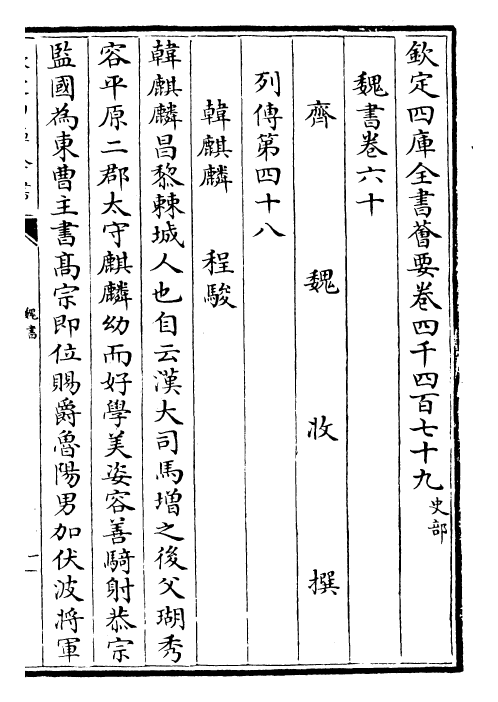 欽定四庫全書薈要卷四千四百七十九 史部
魏書卷六十
齊 魏 收 撰
列傳第四十八
韓麒麟 程駿
韓麒麟昌黎棘城人也自云漢大司馬增之後父瑚秀
容平原二郡太守麒麟幼而好學美姿容善騎射恭宗
監國為東曹主書髙宗即位賜爵魯陽男加伏波将軍
魏書
一